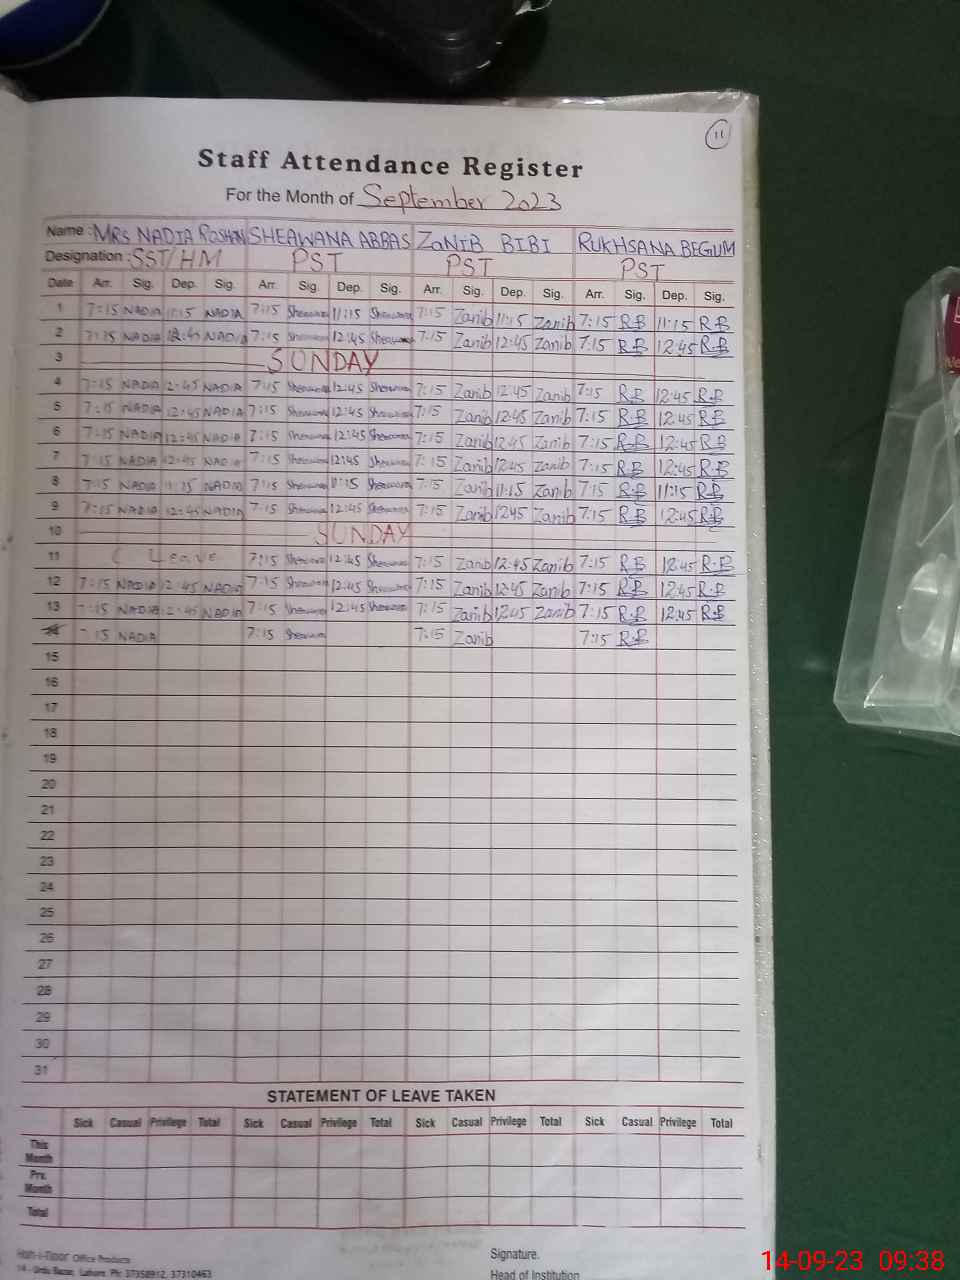 11
Staff Attendance Register
For the Month of September 2023
Name : MRS NADIA ROSHAN SHEAWANA ABBAS ZANIB BIBI RUKHSANA BEGUM
Designation : SST/HM PST PST PST
Date Arr. Sig. Dep. Sig. Arr. Sig. Dep. Sig. Arr. Sig. Dep. Sig. Arr. Sig. Dep. Sig.
1 7:15 NADIA 11:15 NADIA 7:15 Sheawana 11:15 Sheawana 7:15 Zanib 11:15 Zanib 7:15 R.B 11:15 R.B
2 7:15 NADIA 12:45 NADIA 7:15 Sheawana 12:45 Sheawana 7:15 Zanib 12:45 Zanib 7:15 R.B 12:45 R.B
3 SUNDAY
4 7:15 NADIA 12:45 NADIA 7:15 Sheawana 12:45 Sheawana 7:15 Zanib 12:45 Zanib 7:15 R.B 12:45 R.B
5 7:15 NADIA 12:45 NADIA 7:15 Sheawana 12:45 Sheawana 7:15 Zanib 12:45 Zanib 7:15 R.B 12:45 R.B
6 7:15 NADIA 12:45 NADIA 7:15 Sheawana 12:45 Sheawana 7:15 Zanib 12:45 Zanib 7:15 R.B 12:45 R.B
7 7:15 NADIA 12:45 NADIA 7:15 Sheawana 12:45 Sheawana 7:15 Zanib 12:45 Zanib 7:15 R.B 12:45 R.B
8 7:15 NADIA 11:15 NADIA 7:15 Sheawana 11:15 Sheawana 7:15 Zanib 11:15 Zanib 7:15 R.B 11:15 R.B
9 7:15 NADIA 12:45 NADIA 7:15 Sheawana 12:45 Sheawana 7:15 Zanib 12:45 Zanib 7:15 R.B 12:45 R.B
10 SUNDAY
11 C Leave 7:15 Sheawana 12:45 Sheawana 7:15 Zanib 12:45 Zanib 7:15 R.B 12:45 R.B
12 7:15 NADIA 12:45 NADIA 7:15 Sheawana 12:45 Sheawana 7:15 Zanib 12:45 Zanib 7:15 R.B 12:45 R.B
13 7:15 NADIA 12:45 NADIA 7:15 Sheawana 12:45 Sheawana 7:15 Zanib 12:45 Zanib 7:15 R.B 12:45 R.B
7:15 NADIA 7:15 Sheawana 7:15 Zanib 7:15 R.B
15
16
17
18
19
20
21
22
23
24
25
26
27
28
29
30
31
STATEMENT OF LEAVE TAKEN
Sick Casual Privilege Total Sick Casual Privilege Total Sick Casual Privilege Total Sick Casual Privilege Total
This Month
Prv. Month
Total
Office Products
14 - Urdu Bazar, Lahore. Ph: 37358912, 37310463
Signature.
Head of Institution
14-09-23 09:38